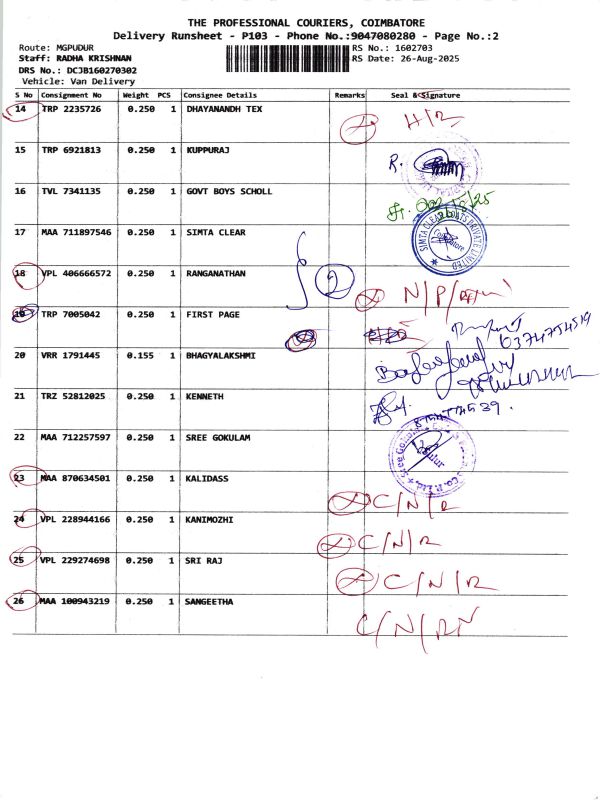 THE PROFESSIONAL COURIERS, COIMBATORE
Delivery Runsheet - P103 - Phone No.:9047080280 - Page No.:2
Route: MGPUDUR RS No.: 1602703
Staff: RADHA KRISHNAN RS Date: 26-Aug-2025
DRS No.: DCJB160270302
Vehicle: Van Delivery
S No Consignment No Weight PCS Consignee Details Remarks Seal & Signature
14 TRP 2235726 0.250 1 DHAYANANDH TEX
15 TRP 6921813 0.250 1 KUPPURAJ R.
16 TVL 7341135 0.250 1 GOVT BOYS SCHOLL
17 MAA 711897546 0.250 1 SIMTA CLEAR SIMTA CLEAR COATS PRIVATE LIMITED
18 VPL 406666572 0.250 1 RANGANATHAN 2 N/P/
19 TRP 7005042 0.250 1 FIRST PAGE
20 VRR 1791445 0.155 1 BHAGYALAKSHMI
21 TRZ 52812025 0.250 1 KENNETH
22 MAA 712257597 0.250 1 SREE GOKULAM
23 MAA 870634501 0.250 1 KALIDASS C/N/R
24 VPL 228944166 0.250 1 KANIMOZHI C/N/R
25 VPL 229274698 0.250 1 SRI RAJ C/N/R
26 MAA 100943219 0.250 1 SANGEETHA C/N/RN